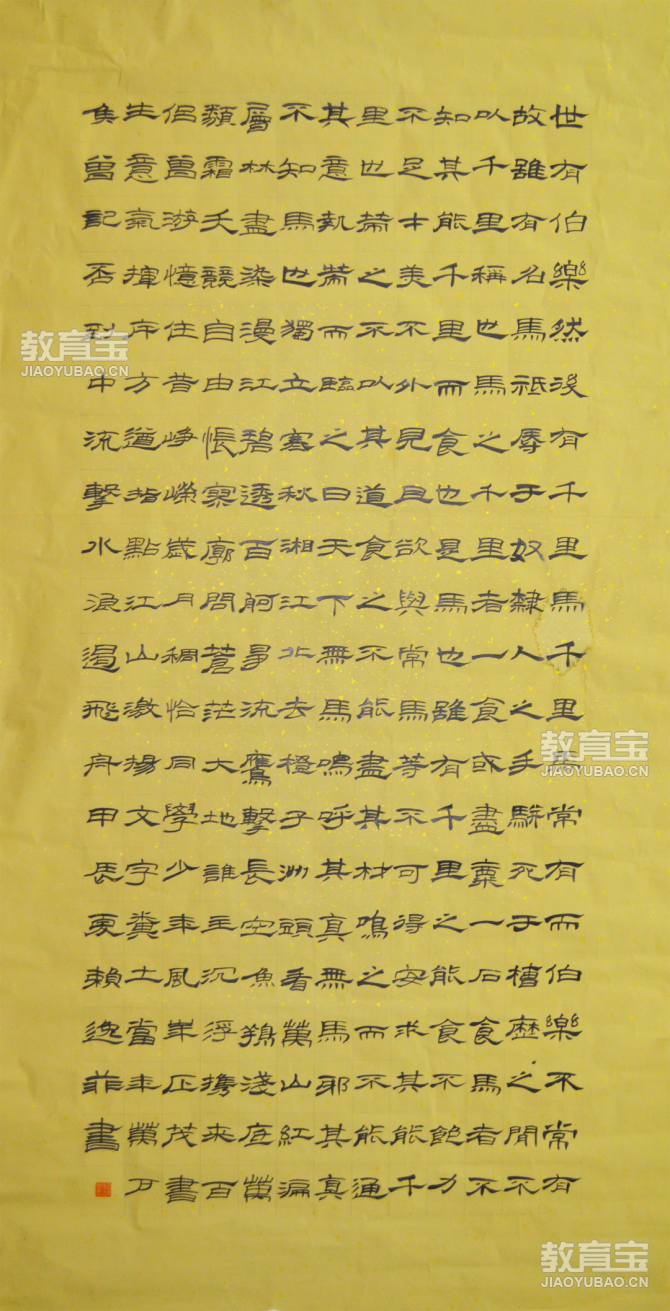 世有伯樂然後有千里馬千里馬常有而伯樂不常有
故雖有名馬祇辱于奴隸人之手駢死于槽歷之間不
以千里稱也馬之千里者一食或盡粟一石食馬者不
知其能千里而食也是馬也雖有千里之能食不飽力
不足才美不外見且欲與常馬等不可得安求其能千
里也策之不以其道食之不能盡其材鳴之而不能通
其意執策而臨之曰天下無馬鳴呼其真無馬邪其真
不知馬也獨立寒秋湘江北去橙子洲頭看萬山紅漏
層林盡染漫江碧透百舸爭流鷹擊長空魚翔淺底萬
類霜天競自由悵寥廓問蒼茫大地誰主沉浮攜来百
侣曾游憶往昔崢嶸歲月稠恰同學少年風華正茂書
生意氣揮斥方遒指點江山激揚文字糞土當年萬户
侯曾記否到中流擊水浪遏飛舟甲辰夏賴逸菲書
教育宝
JIAOYUBAO.CN
教育宝
JIAOYUBAO.CN
教育宝
JIAOYUBAO.CN